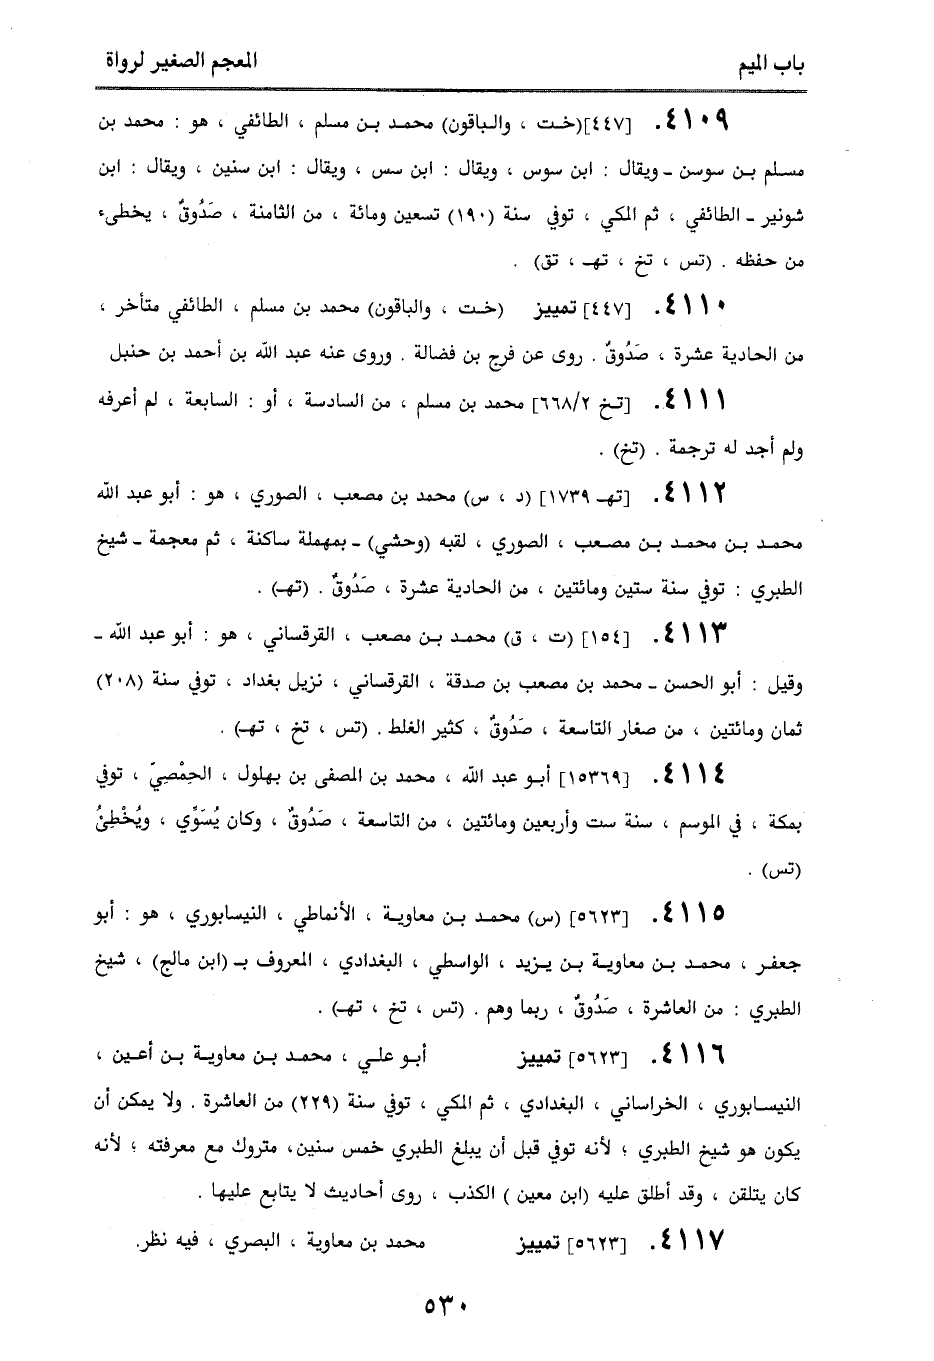 باب الميم
المعجم الصغير لرواة
٤١٠٩. [٤٤٧](خت ، والباقون) محمد بن مسلم ، الطائفي ، هو : محمد بن
مسلم بن سوسن ـ ويقال : ابن سوس ، ويقال : ابن سس ، ويقال : ابن سنين ، ويقال : ابن
شونير ـ الطائفي ، ثم المكي ، توفي سنة (١٩٠) تسعين ومائة ، من الثامنة ، صَدُوقٌ ، يخطىء
من حفظه . (تس ، تخ ، تهـ ، تق) .
٤١١٠. [٤٤٧] تمييز (خت ، والباقون) محمد بن مسلم ، الطائفي متأخر ،
من الحادية عشرة ، صَدُوقٌ . روى عن فرج بن فضالة . وروى عنه عبد الله بن أحمد بن حنبل
٤١١١. [تخ ٦٦٨/٢] محمد بن مسلم ، من السادسة ، أو : السابعة ، لم أعرفه
ولم أجد له ترجمة . (تخ) .
٤١١٢. [تهـ ١٧٣٩] (د ، س) محمد بن مصعب ، الصوري ، هو : أبو عبد الله
محمد بن محمد بن مصعب ، الصوري ، لقبه (وحشي) ـ بمهملة ساكنة ، ثم معجمة ـ شيخ
الطبري : توفي سنة ستين ومائتين ، من الحادية عشرة ، صَدُوقٌ . (تهـ) .
٤١١٣. [١٥٤] (ت ، ق) محمد بن مصعب ، القرقساني ، هو : أبو عبد الله ـ
وقيل : أبو الحسن ـ محمد بن مصعب بن صدقة ، القرقساني ، نزيل بغداد ، توفي سنة (٢٠٨)
ثمان ومائتين ، من صغار التاسعة ، صَدُوقٌ ، كثير الغلط . (تس ، تخ ، تهـ) .
٤١١٤. [١٥٣٦٩] أبو عبد الله ، محمد بن المصفى بن بهلول ، الحِمْصِيّ ، توفي
بمكة ، في الموسم ، سنة ست وأربعين ومائتين ، من التاسعة ، صَدُوقٌ ، وكان يُسَوِّي ، ويُخْطِئُ
(تس) .
٤١١٥. [٥٦٢٣] (س) محمد بن معاوية ، الأنماطي ، النيسابوري ، هو : أبو
جعفر ، محمد بن معاوية بن يزيد ، الواسطي ، البغدادي ، المعروف بـ (ابن مالج) ، شيخ
الطبري : من العاشرة ، صَدُوقٌ ، ربما وهم . (تس ، تخ ، تهـ) .
٤١١٦. [٥٦٢٣] تمييز أبو علي ، محمد بن معاوية بن أعين ،
النيسابوري ، الخراساني ، البغدادي ، ثم المكي ، توفي سنة (٢٢٩) من العاشرة . ولا يمكن أن
يكون هو شيخ الطبري ؛ لأنه توفي قبل أن يبلغ الطبري خمس سنين، متروك مع معرفته ؛ لأنه
كان يتلقن ، وقد أطلق عليه (ابن معين ) الكذب ، روى أحاديث لا يتابع عليها .
٤١١٧. [٥٦٢٣] تمييز محمد بن معاوية ، البصري ، فيه نظر.
٥٣٠